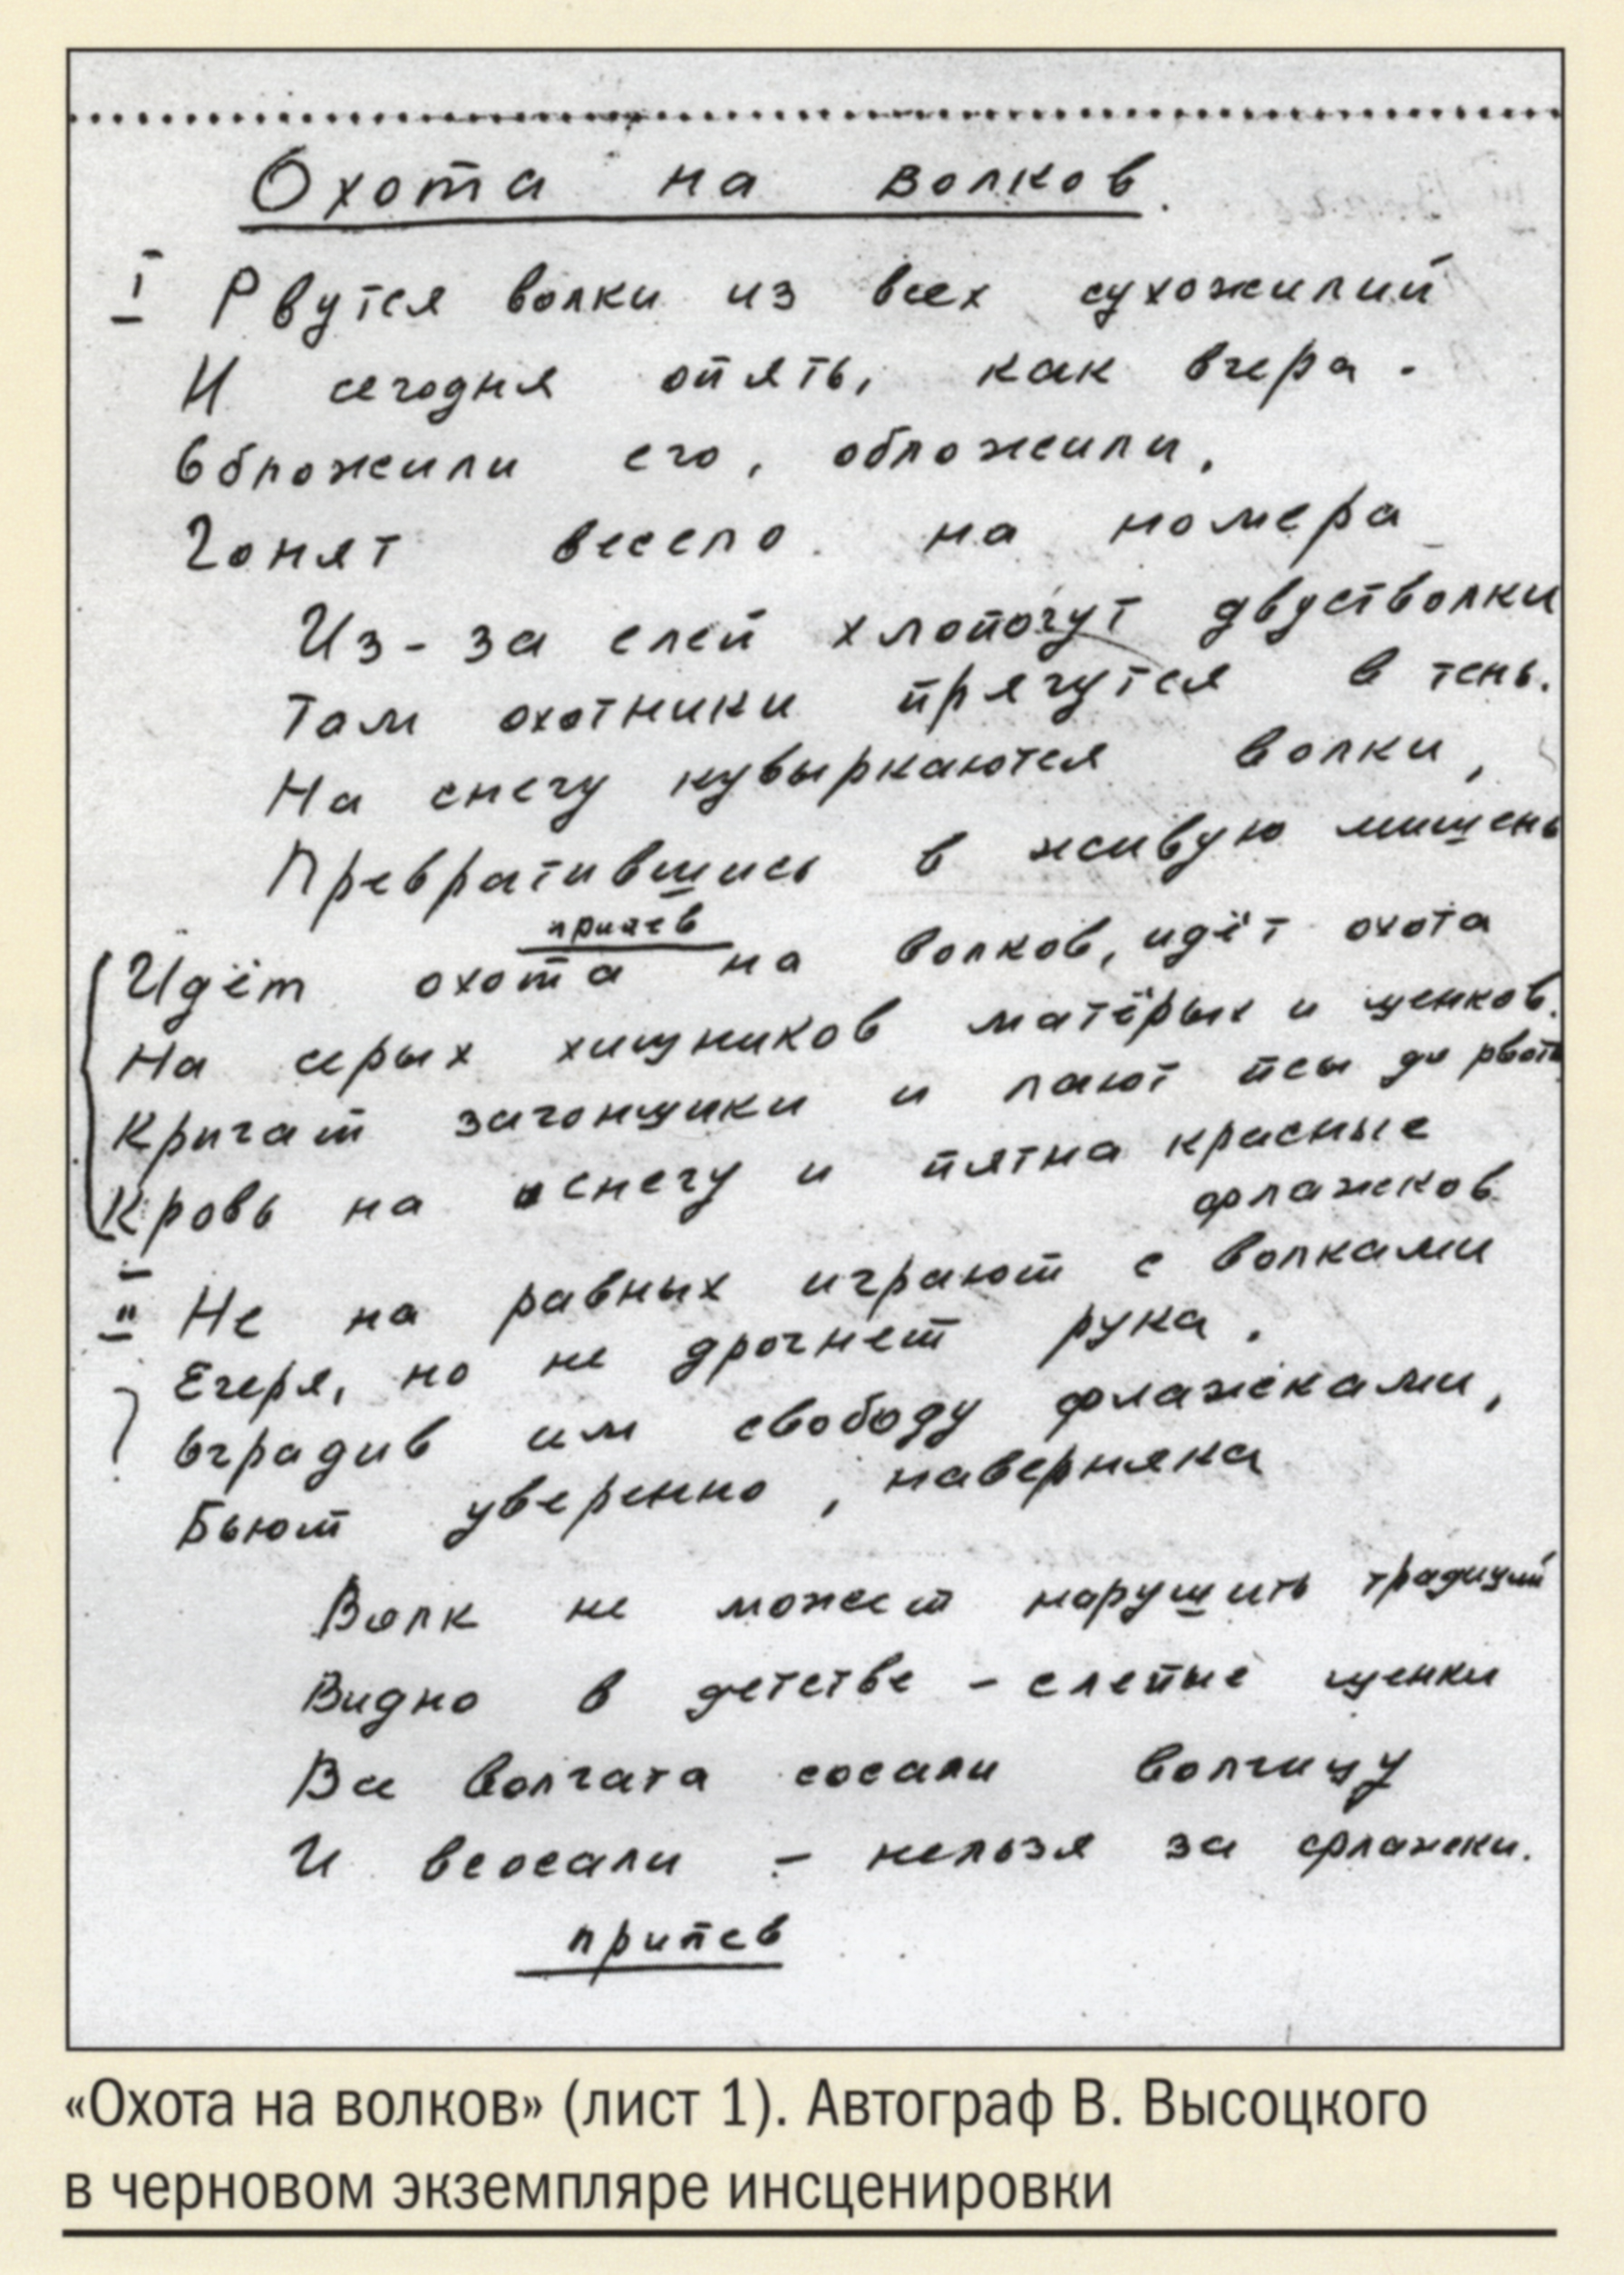 Охота на волков.
I Рвутся волки из всех сухожилий
И сегодня опять, как вчера.
Обложили его, обложили,
Гонят весело на номера
Из-за елей хлопочут двустволки
Там охотники прячутся в тень.
На снегу кувыркаются волки,
Превратившись в живую мишень
припев
Идёт охота на волков, идёт охота
На серых хищников матёрых и щенков.
Кричат загонщики и лают псы до рвоты
Кровь на снегу и пятна красные
флажков
II Не на равных играют с волками
Егеря, но не дрогнет рука.
Оградив им свободу флажками,
Бьют уверенно, наверняка
Волк не может нарушить традиций
Видно в детстве - слепые щенки
Все волчата сосали волчицу
И всосали - нельзя за флажки.
припев
«Охота на волков» (лист 1). Автограф В. Высоцкого
в черновом экземпляре инсценировки